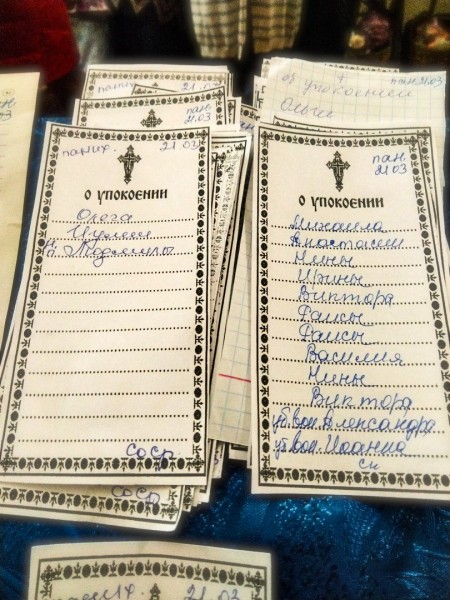 21.03
пан.
21.03
об упокоении
пан. 21.03
Ольги
паних. 21.03
о упокоении
Олега
Людмилы
сосф
сосф
пан.
21.03
о упокоении
Михаила
Анастасии
Нины
Ирины
Виктора
Раисы
Раисы
Василия
Нины
Виктора
уб. вои. Александра
уб. вои. Иоанна
си
паних. 21.03